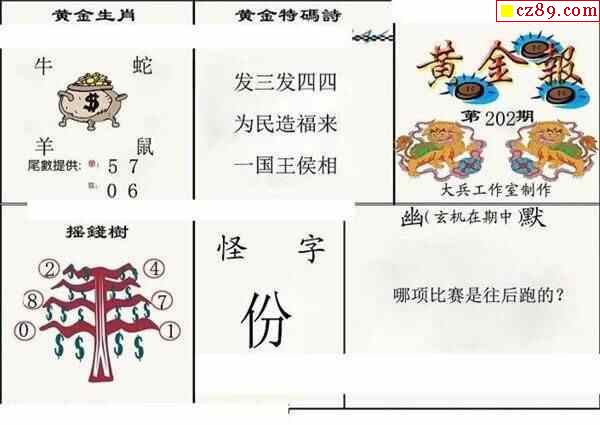 cz89.com
黄金生肖
牛 蛇
$
羊 鼠
尾數提供: 單: 5 7
0 6
黄金特碼詩
发三发四四
为民造福来
一国王侯相
黄金報
第202期
大兵工作室制作
摇錢樹
2 4
8 7
0 1
怪 字
份
幽(玄机在期中 默
哪项比赛是往后跑的？